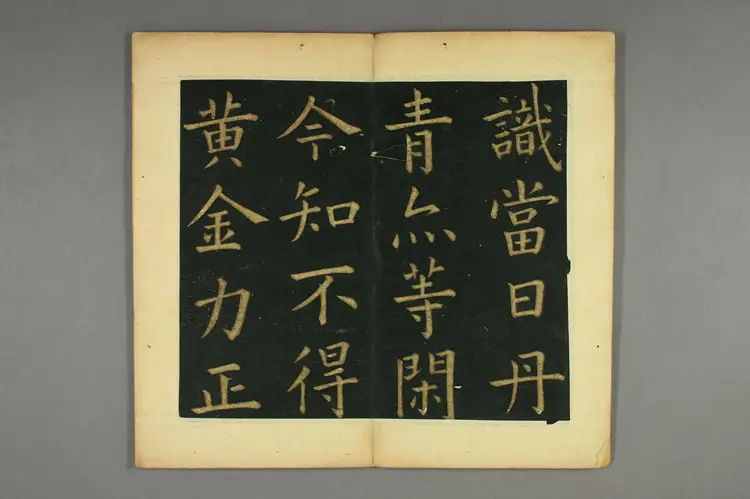 識當日丹
青亦等閑
今知不得
黃金力正